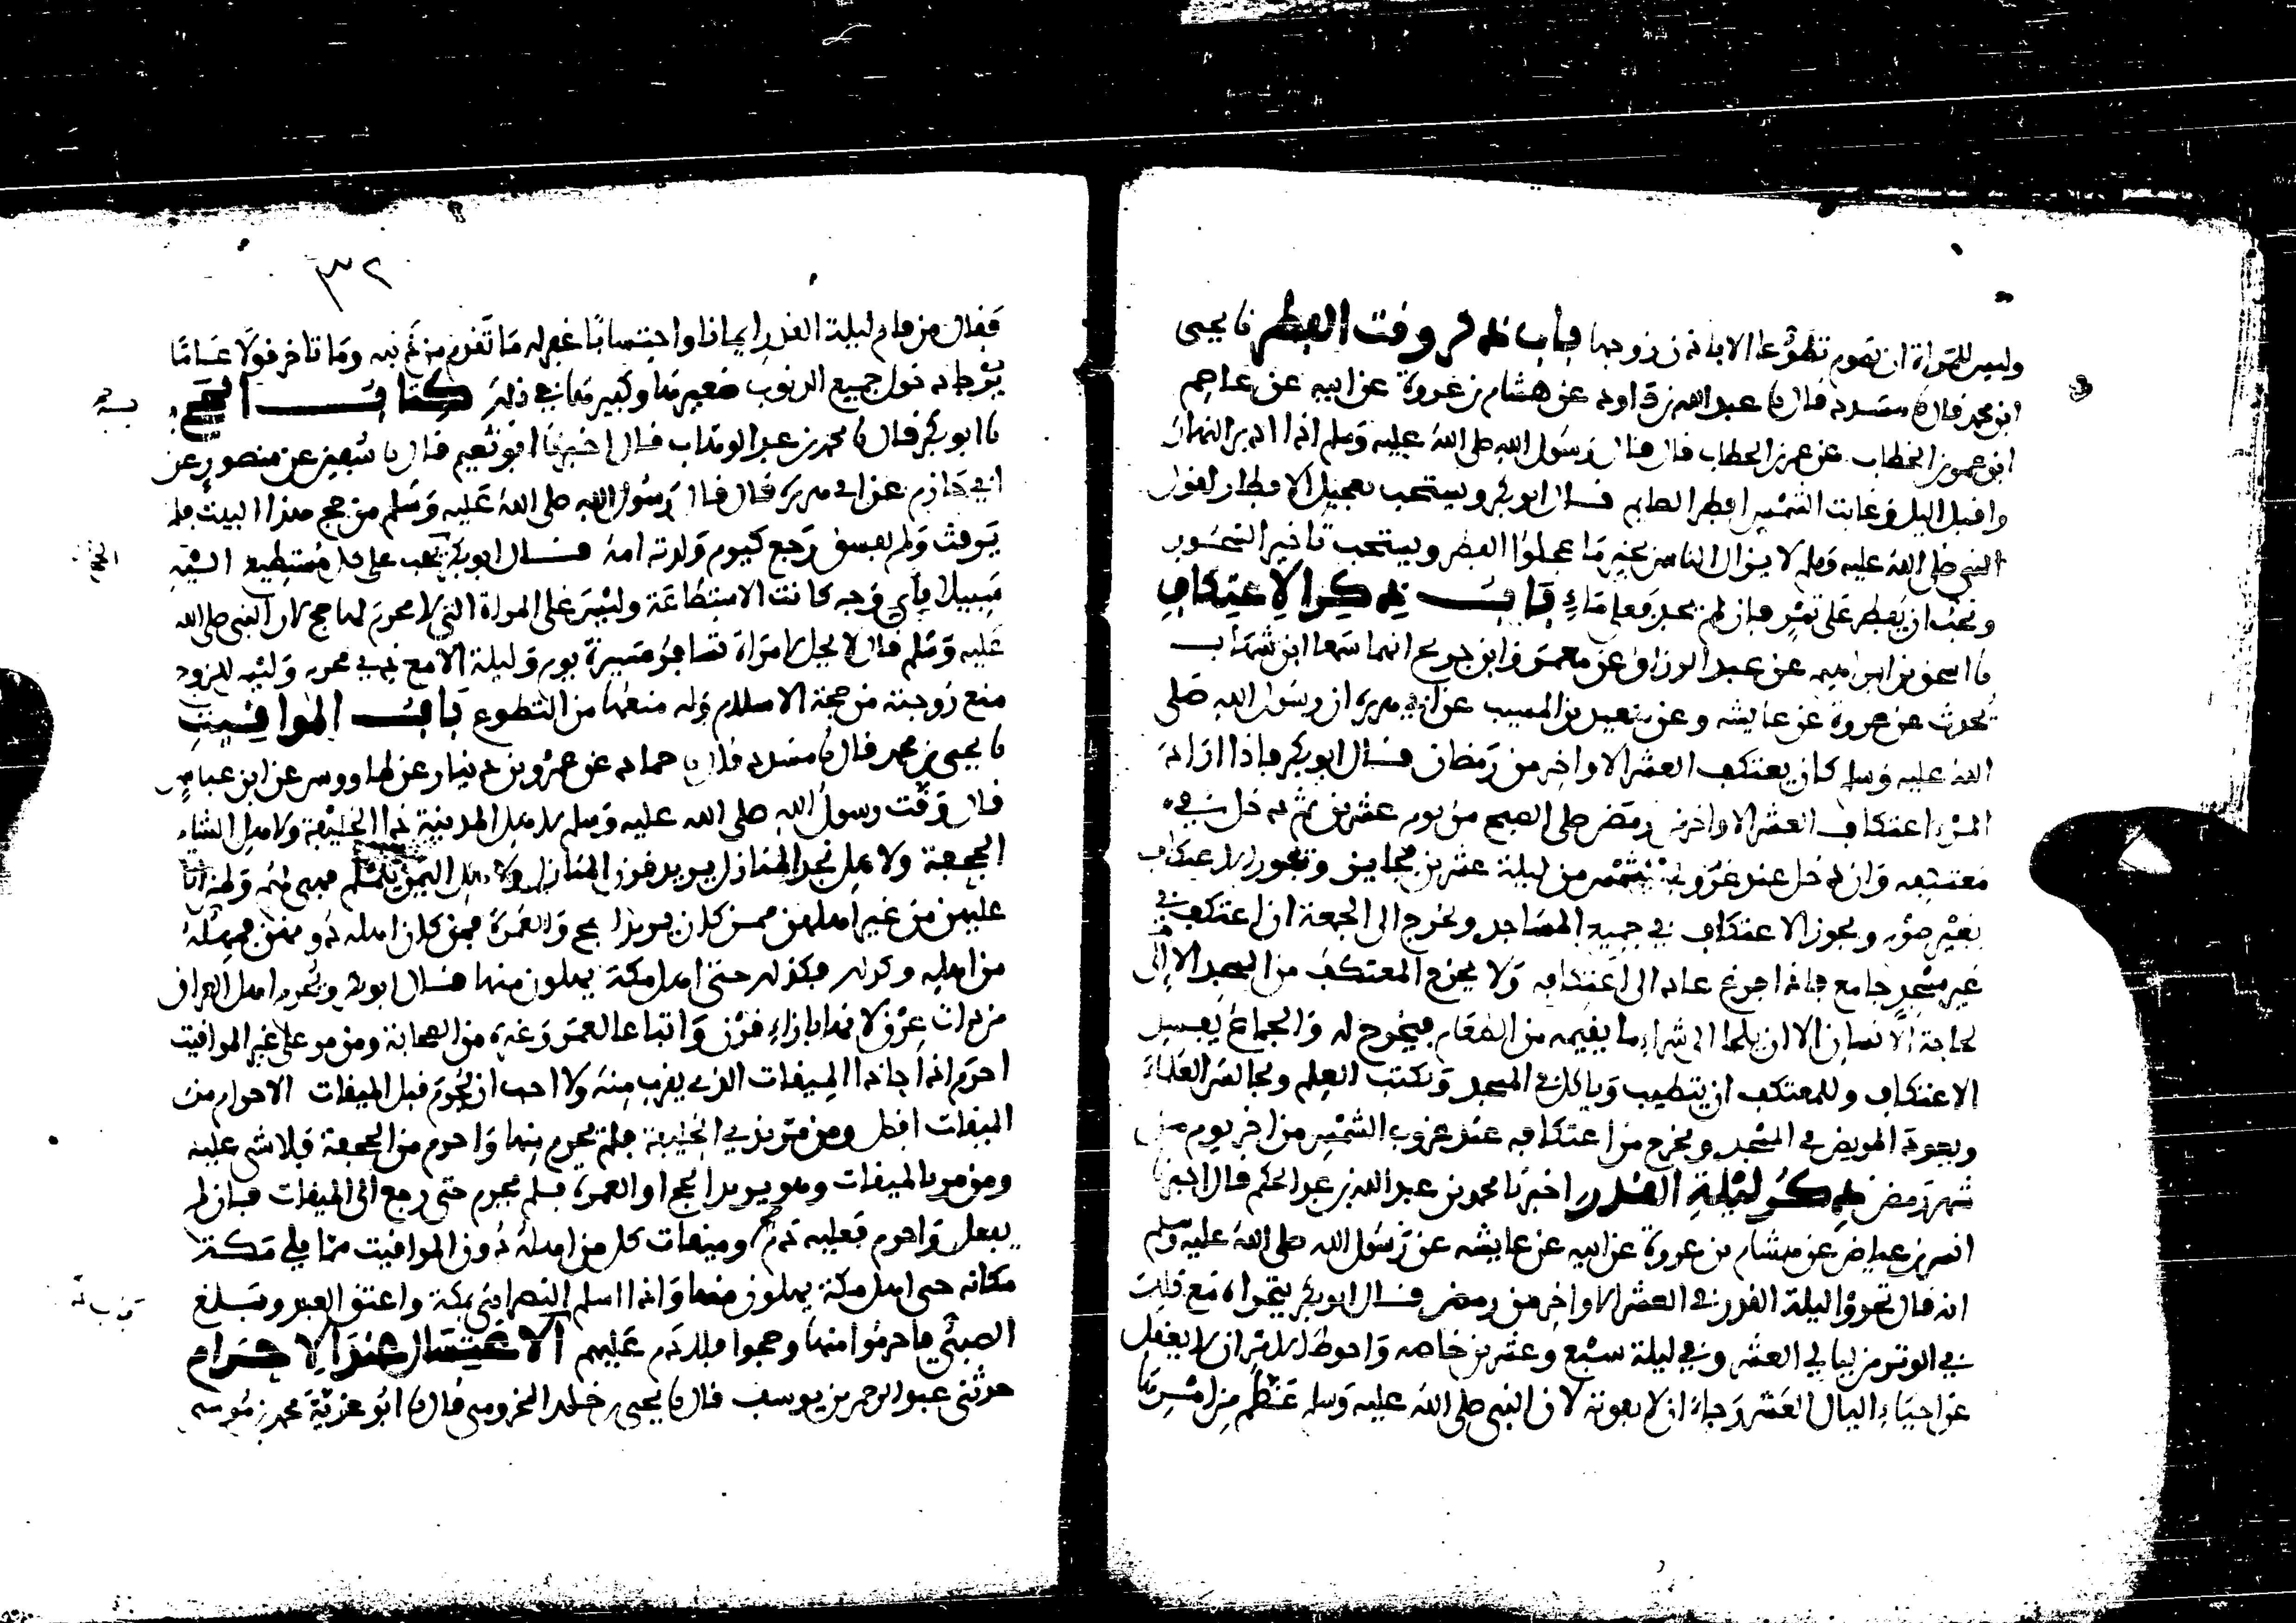 وليس للمرأة ان تصوم تطوعا الا باذن زوجها باب ذكر وقت الفطر نا يحيى
ابن محمد قال نا مسدد قال نا عبد الله بن داود عن هشام بن عروة عن ابيه عن عاصم
ابن عمر بن الخطاب عن عمر بن الخطاب قال قال رسول الله صلى الله عليه وسلم اذا ادبر النهار
واقبل اليل وغابت الشمس افطر الصايم قال ابو بكر ويستحب تعجيل الافطار لقول
النبي صلى الله عليه وسلم لا يزال الناس بخير ما عجلوا الفطر ويستحب تاخير السحور
ونحب ان يفطر على تمر فان لم يجد فعلى ماء باب ذكر الاعتكاف
نا اسحق بن ابراهيم عن عبد الرزاق عن معمر وابن جريج انهما سمعا ابن شهاب
يحدث عن عروة عن عايشه وعن سعيد بن المسيب عن ابي هريرة ان رسول الله صلى
الله عليه وسلم كان يعتكف العشر الاواخر من رمضان قال ابو بكر فاذا اراد
المرء اعتكاف العشر الاواخر من رمضن صلى الصبح من يوم عشرين ثم دخل في
معتكفه وان دخل عند غروب الشمس من ليلة عشرين فجايز ويجوز الاعتكاف
بغير صوم ويجوز الاعتكاف في جميع المساجد ويخرج الى الجمعة ان اعتكف في
غير مسجد جامع فاذا خرج عاد الى اعتكافه ولا يخرج المعتكف من المسجد الا الى
لحاجة الانسان الا ان يلجا الى شراء ما يقيمه من الطعام فيخرج له والجماع يفسد
الاعتكاف وللمعتكف ان يتطيب وياكل في المسجد ويكتب العلم ويجالس العلماء
ويعود المريض في المسجد ويخرج من اعتكافه عند غروب الشمس من اخر يوم من
شهر رمضن ذكر ليلة القدر اخبرنا محمد بن عبد الله بن عبد الحكم قال اخبرنا
انس بن عياض عن هشام بن عروة عن ابيه عن عايشه عن رسول الله صلى الله عليه وسلم
انه قال تحروا ليلة القدر في العشر الاواخر من رمضن قال ابو بكر يتحراه
في الوتر من ليالي العشر وفي ليلة سبع وعشرين خاصه واحوط للمرء ان لا يغفل
عن احياء اليال العشر رجاء ان لا يفوته لان النبي صلى الله عليه وسلم عظم من امرها
٣٢
فقال من قام ليلة القدر ايمانا واحتسابا غفر له ما تقدم من ذنبه وما تاخر قولا عاما
يرجا دخول جميع الذنوب صغيرها وكبيرها في ذلك كتاب الحج
نا ابو بكر قال نا محمد بن عبد الوهاب قال اخبرنا ابو نعيم قال نا سفين عن منصور عن
ابي حازم عن ابي هريرة قال قال رسول الله صلى الله عليه وسلم من حج هذا البيت فلم
يرفث ولم يفسق رجع كيوم ولدته امه قال ابو بكر يجب على كل مستطيع اليه
سبيلا باي وجه كانت الاستطاعة وليس على المراة التي لا محرم لها حج لان النبي صلى الله
عليه وسلم قال لا يحل لامراة تسافر مسيرة يوم وليلة الا مع ذي محرم وليس للزوج
منع زوجته من حجة الاسلام وله منعها من التطوع باب المواقيت
نا يحيى بن محمد قال نا مسدد قال نا حماد عن عمرو بن دينار عن طاووس عن ابن عباس
قال وقت رسول الله صلى الله عليه وسلم لاهل المدينة ذا الحليفة ولاهل الشام
الجحفة ولاهل نجد المنازل يريد قرن المنازل ولاهل اليمن يلملم فهي لهم ولمن اتا
عليهن من غير اهلهن ممن كان يريد الحج والعمرة فمن كان اهله دونهن فمهله
من اهله وكذلك فكذلك حتى اهل مكة يهلون منها قال ابو بكر ويحرم اهل العراق
من ذات عرق لانها بازاء قرن واتباعا لعمر وغيره من الصحابة ومن مر على غير المواقيت
احرم اذا حاذا الميقات الذي يقرب منه ولا احب ان يحرم قبل الميقات الاحرام من
الميقات افضل ومن مر بذي الحليفة فلم يحرم منها واحرم من الجحفة فلا شي عليه
ومن مر بالميقات وهو يريد الحج او العمرة فلم يحرم حتى رجع الى الميقات فان لم
يفعل واحرم فعليه دم وميقات كل من اهله دون المواقيت مما يلي مكة
مكانه حتى اهل مكة يهلون منها واذا اسلم النصراني بمكة واعتق العبد وبلغ
الصبي فاحرموا منها وحجوا فلا دم عليهم الاغتسال عند الاحرام
حدثني عبد الرحمن بن يوسف قال نا يحيى بن خلد المخزومي قال نا ابو غزية محمد بن موسى